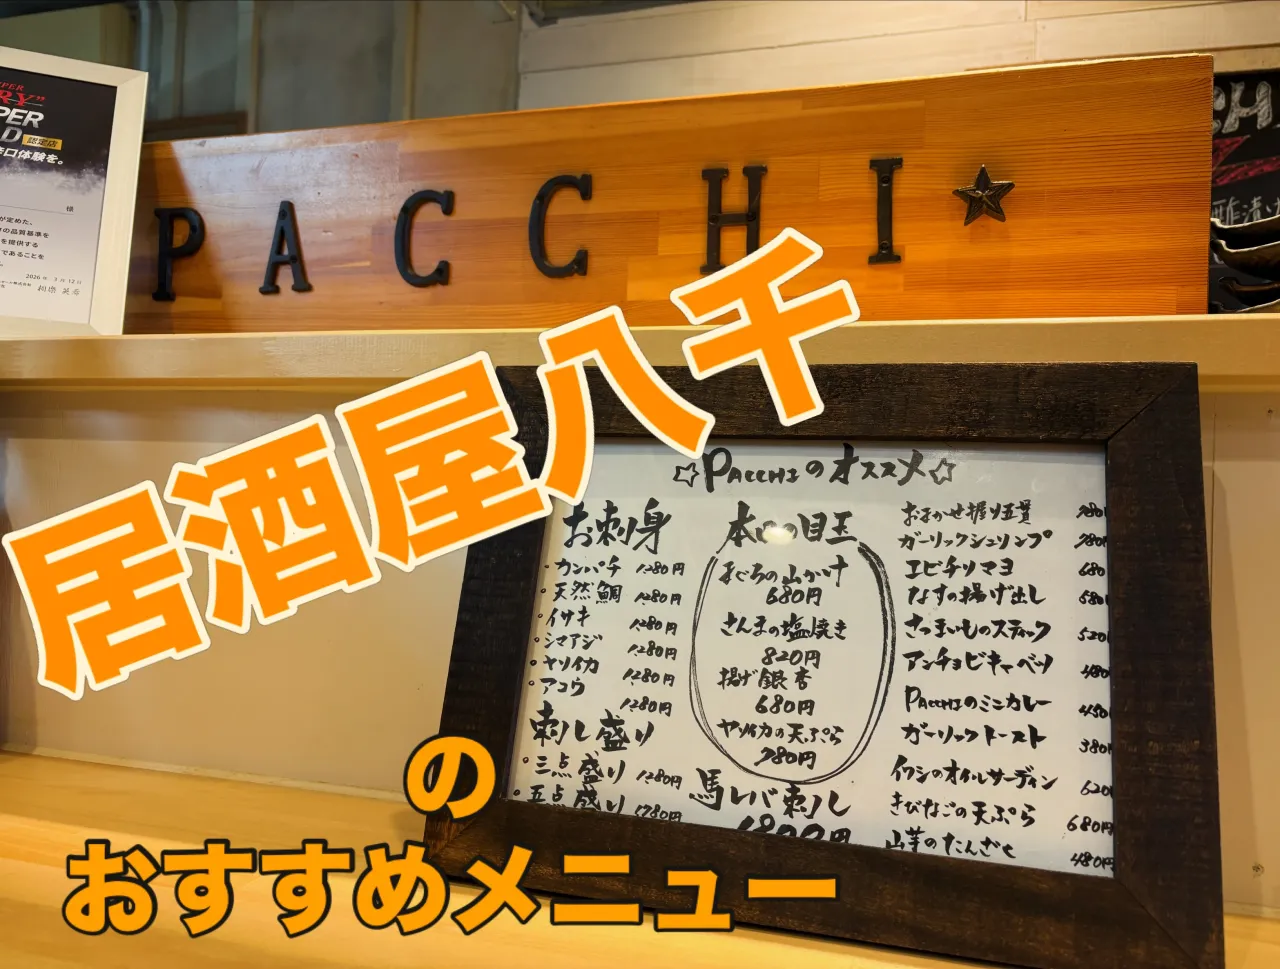 PER
RY”
PER
LD 認定店
口体験を。
様
が定めた、
の品質基準を
を提供する
であることを
2026年 3月12日
PACCHI
CH
酢漬け
居酒屋八千
☆PACCHIのオススメ☆
お刺身
・カンパチ 1,280円
・天然鯛 1,280円
・イサキ 1,280円
・シマアジ 1,280円
・ヤリイカ 1,280円
・アコウ 1,280円
刺し盛り
・三点盛り 1,280円
・五点盛り 1,780円
本日の目玉
まぐろの山かけ
680円
さんまの塩焼き
820円
揚げ銀杏
680円
ヤリイカの天ぷら
780円
馬レバ刺し
おまかせ握り五貫 980円
ガーリックシュリンプ 780円
エビチリマヨ 680
なすの揚げ出し 580
さつまいものスティック 520
アンチョビキャベツ 480
PACCHIのミニカレー 450
ガーリックトースト 380
イワシのオイルサーディン 620
きびなごの天ぷら 680円
山芋のたんざく 480円
の
おすすめメニュー